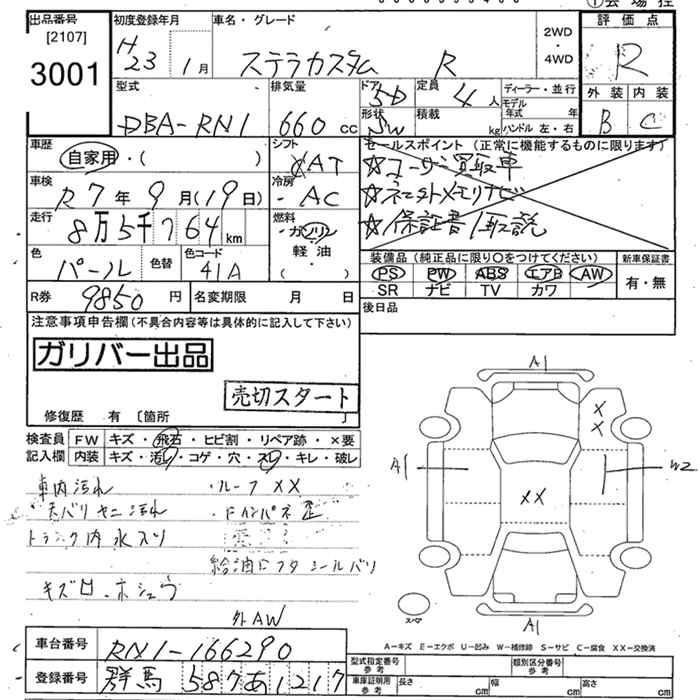 出品番号 [2107] 3001
初度登録年月 H 23 1月
車名・グレード ステラカスタム R
2WD・4WD
評価点 R
外装 B 内装 C
型式 DBA-RN1
排気量 660 cc
ドア 5D
形状 SW
定員 4人
積載 kg
ディーラー・並行
モデル年式 年
ハンドル 左・右
車歴 自家用・( )
シフト AT
セールスポイント (正常に機能するものに限ります)
☆ユーザー買取車
☆ネニットメモリナビ
☆保証書/取説
車検 R7年9月(19日)
冷房 AC
走行 8万5千764 km
燃料 ガソリン 軽油・( )
色 パール 色替
色コード 41A
装備品 (純正品に限り○をつけてください)
PS PW ABS エアB AW
SR ナビ TV カワ
新車保証書 有・無
R券 9850円
名変期限 月 日
後日品
注意事項申告欄(不具合内容等は具体的に記入して下さい)
ガリバー出品
売切スタート
修復歴 有 〔箇所 〕
検査員記入欄
FW キズ・飛石・ヒビ割・リペア跡・×要
内装 キズ・汚レ・コゲ・穴・スレ・キレ・破レ
車内汚れ
・ルーフ XX
天バリ ヤニ汚れ
トランク内 水入リ
給油口フタ シールバリ
キズ凹・ホシュウ
外AW
A1
X
X
A1
W2
XX
スペア
A1
A-キズ E-エクボ U-凹み W-補修跡 S-サビ C-腐食 XX-交換済
車台番号 RN1-166290
登録番号 群馬 587 あ 1217
型式指定番号 参考
類別区分番号 参考
車庫証明用 参考 長さ cm 幅 cm 高さ cm